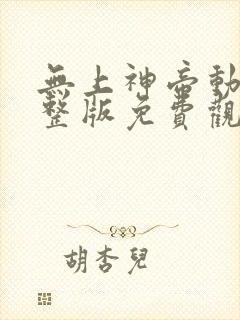 無上神帝動
整版免費觀
胡杏兒